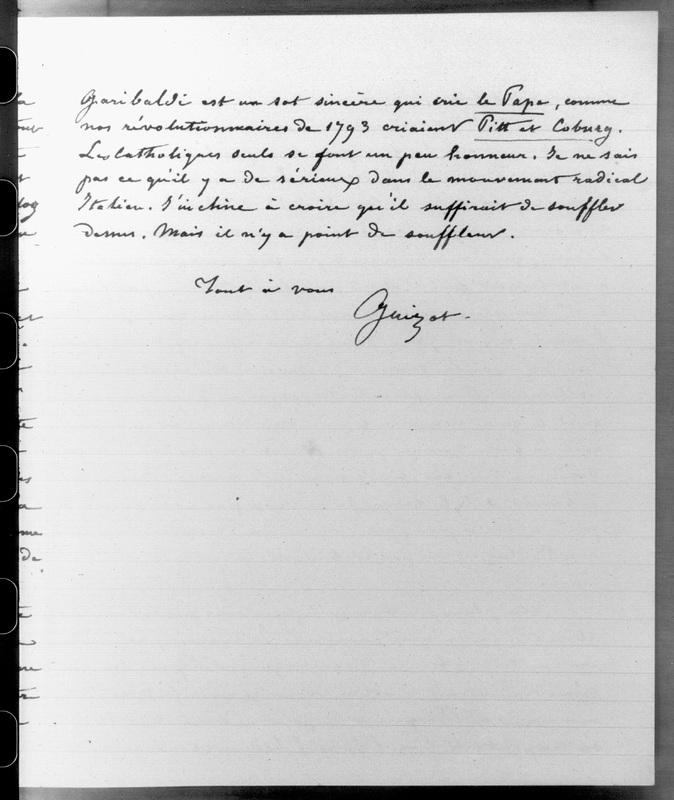 Garibaldi est un sot sincère qui crie le Pape, comme
nos révolutionnaires de 1793 criaient Pitt et Coburg.
Les Catholiques seuls se font un peu honneur. Je ne sais
pas ce qu'il y a de sérieux dans le mouvement radical
Italien. J'incline à croire qu'il suffirait de souffler
dessus. Mais il n'y a point de souffleur.
Tout à vous
Guizot.